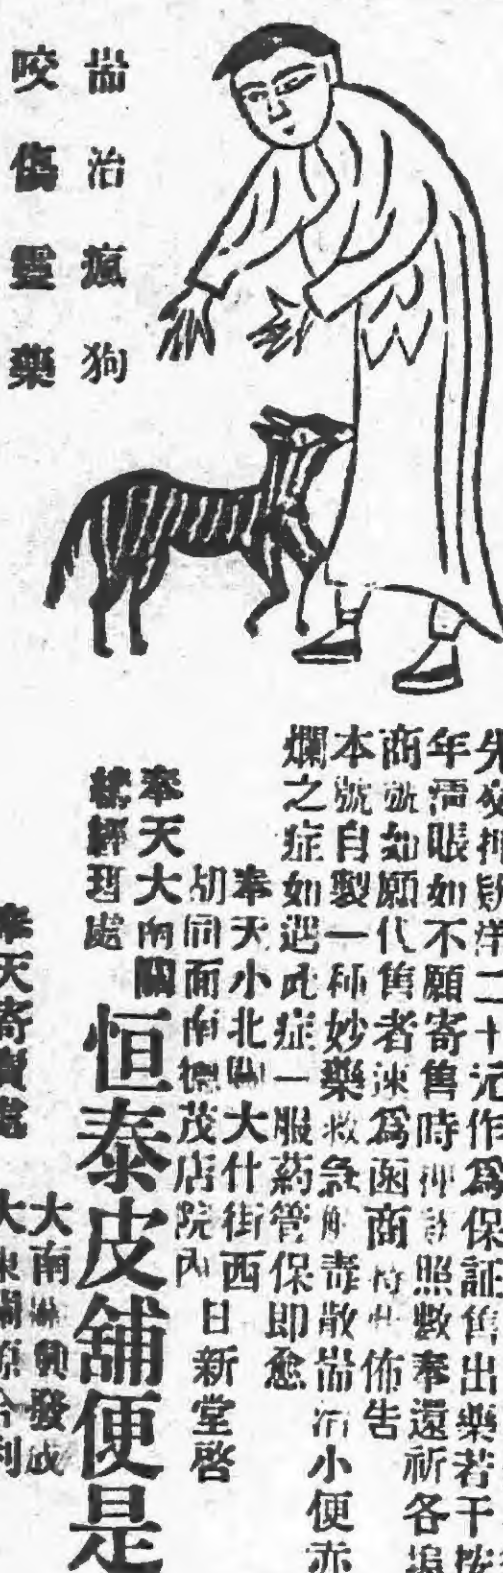 耑治瘋狗
咬傷靈藥
先交押款洋二十元作爲保証售出藥若干按
年淸賬如不願寄售時押欵照數奉還祈各埠
商號如願代售者速爲函商特此佈告
本號自製一种妙藥救急解毒散耑治小便赤
爛之症如遇此症一服葯管保即愈
奉天小北關大什街西
胡同面南德茂店院內
日新堂啓
奉天大南關
總經理處
恒泰皮舖便是
奉天寄賣處
大南關興發成